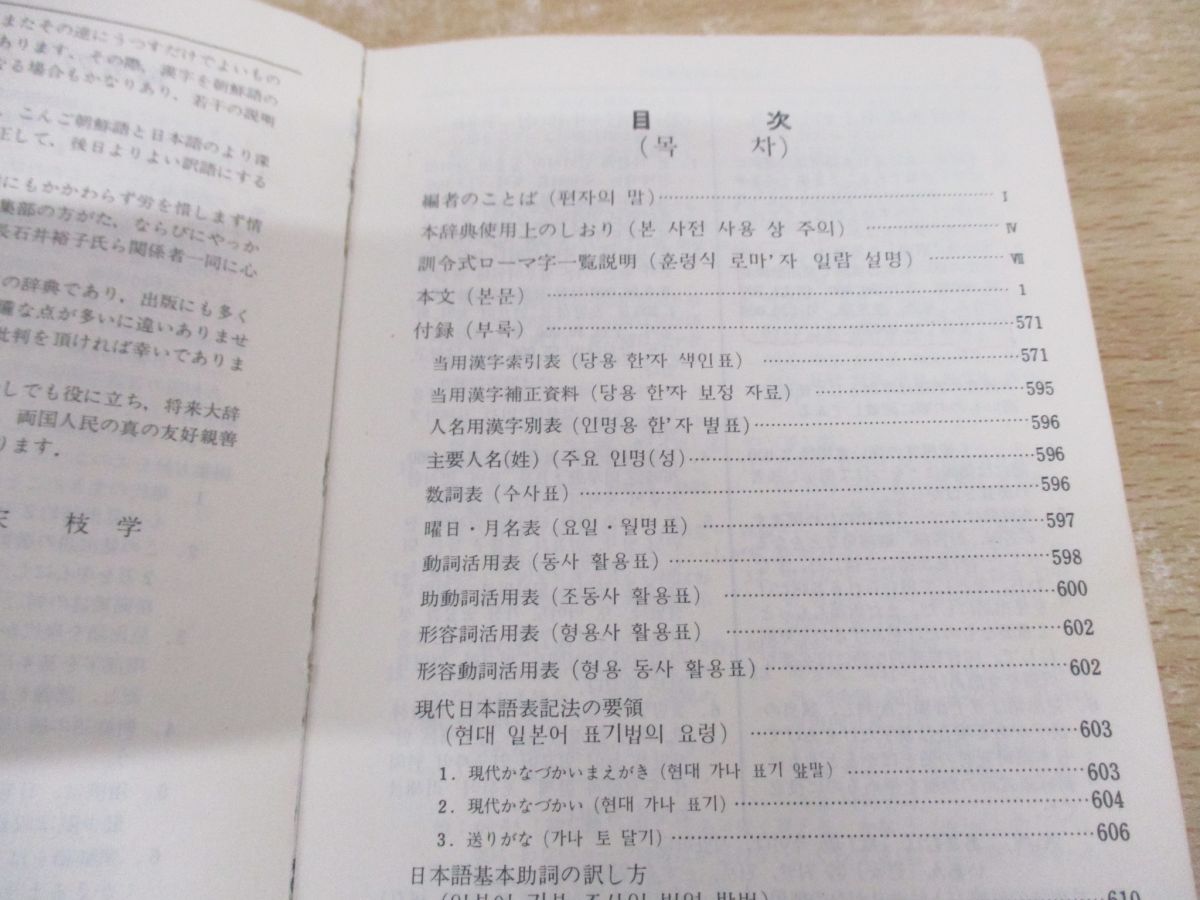 またその逆にうつすだけでよいもの
あります．その際，漢字を朝鮮語の
なる場合もかなりあり，若干の説明
こんご朝鮮語と日本語のより深
正して，後日よりよい訳語にする
にもかかわらず労を惜しまず情
集部の方がた，ならびにやっか
長石井裕子氏ら関係者一同に心
の辞典であり，出版にも多く
備な点が多いに違いありませ
批判を頂ければ幸いでありま
しでも役に立ち，将来大辞
両国人民の真の友好親善
ります．
枝 学
目 次
(목 차)
編者のことば (편자의 말) Ⅰ
本辞典使用上のしおり (본 사전 사용 상 주의) Ⅳ
訓令式ローマ字一覧説明 (훈령식 로마'자 일람 설명) Ⅶ
本文 (본문) 1
付録 (부록) 571
当用漢字索引表 (당용 한'자 색인표) 571
当用漢字補正資料 (당용 한'자 보정 자료) 595
人名用漢字別表 (인명용 한'자 별표) 596
主要人名(姓) (주요 인명(성) 596
数詞表 (수사표) 596
曜日・月名表 (요일・월명표) 597
動詞活用表 (동사 활용표) 598
助動詞活用表 (조동사 활용표) 600
形容詞活用表 (형용사 활용표) 602
形容動詞活用表 (형용 동사 활용표) 602
現代日本語表記法の要領
(현대 일본어 표기법의 요령) 603
1. 現代かなづかいまえがき (현대 가나 표기 앞말) 603
2. 現代かなづかい (현대 가나 표기) 604
3. 送りがな (가나 토 달기) 606
日本語基本助詞の訳し方
(일본어 기본 조사의 번역 방법) 610